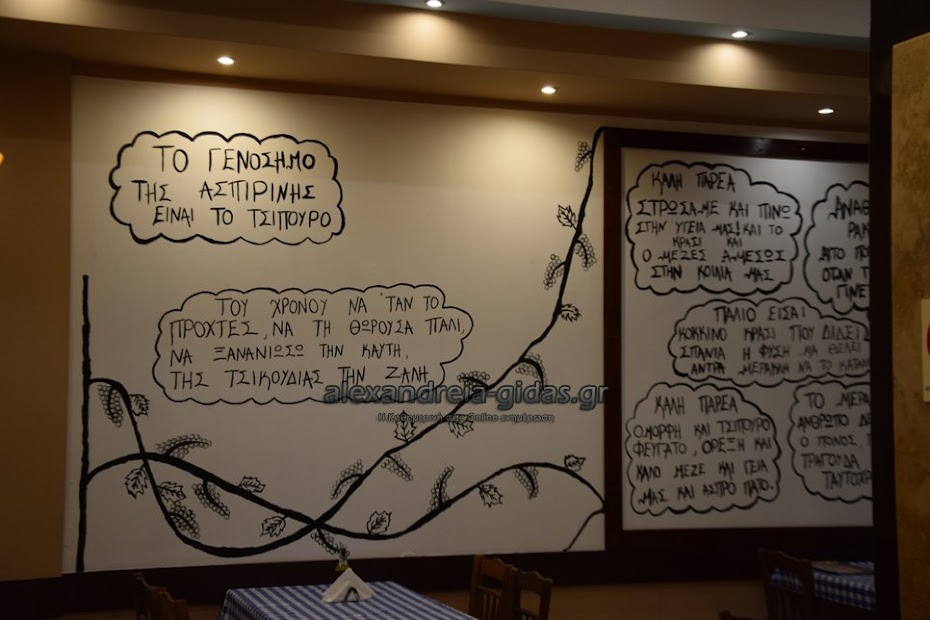 ΤΟ ΓΕΝΟΣΗΜΟ
ΤΗΣ ΑΣΠΙΡΙΝΗΣ
ΕΙΝΑΙ ΤΟ ΤΣΙΠΟΥΡΟ
ΤΟΥ ΧΡΟΝΟΥ ΝΑ ΤΑΝ ΤΟ
ΠΡΟΧΤΕΣ, ΝΑ ΤΗ ΘΩΡΟΥΣΑ ΠΑΛΙ,
ΝΑ ΞΑΝΑΝΙΩΣΩ ΤΗΝ ΚΑΥΤΗ,
ΤΗΣ ΤΣΙΚΟΥΔΙΑΣ ΤΗΝ ΖΑΛΗ
alexandreia-gidas.gr
Η Καθημερινή σας Online ενημέρωση
ΚΑΛΗ ΠΑΡΕΑ
ΣΤΡΩΣΑΜΕ ΚΑΙ ΠΙΝΩ
ΣΤΗΝ ΥΓΕΙΑ ΜΑΣ! ΚΑΙ ΤΟ
ΚΡΑΣΙ ΚΑΙ
Ο ΜΕΖΕΣ ΑΜΕΣΩΣ
ΣΤΗΝ ΚΟΙΛΙΑ ΜΑΣ
ΑΝΑΘ
ΡΑΚ
ΟΤΑΝ Τ
ΓΙΝΕ
ΠΑΛΙΟ ΕΙΣΑΙ
ΚΟΚΚΙΝΟ ΚΡΑΣΙ ΠΟΥ ΔΙΔΕΙ
ΣΠΑΝΙΑ Η ΦΥΣΗ ΜΑ ΘΕΛΕΙ
ΑΝΤΡΑ ΜΕΡΑΚΛΗ ΝΑ ΤΟ ΚΑΤΑΝ
ΚΑΛΗ ΠΑΡΕΑ
ΟΜΟΡΦΗ ΚΑΙ ΤΣΙΠΟΥΡΟ
ΦΕΥΓΑΤΟ, ΟΡΕΞΗ ΚΑΙ
ΚΑΛΟ ΜΕΖΕ ΚΑΙ ΓΕΙΑ
ΜΑΣ ΚΑΙ ΑΣΠΡΟ ΠΑΤΟ.
ΤΟ ΜΕΡΑ
ΑΝΘΡΩΠΟ ΔΕ
Ο ΠΟΝΟΣ,
ΤΡΑΓΟΥΔΑ
ΤΑΥΤΟΧΡ